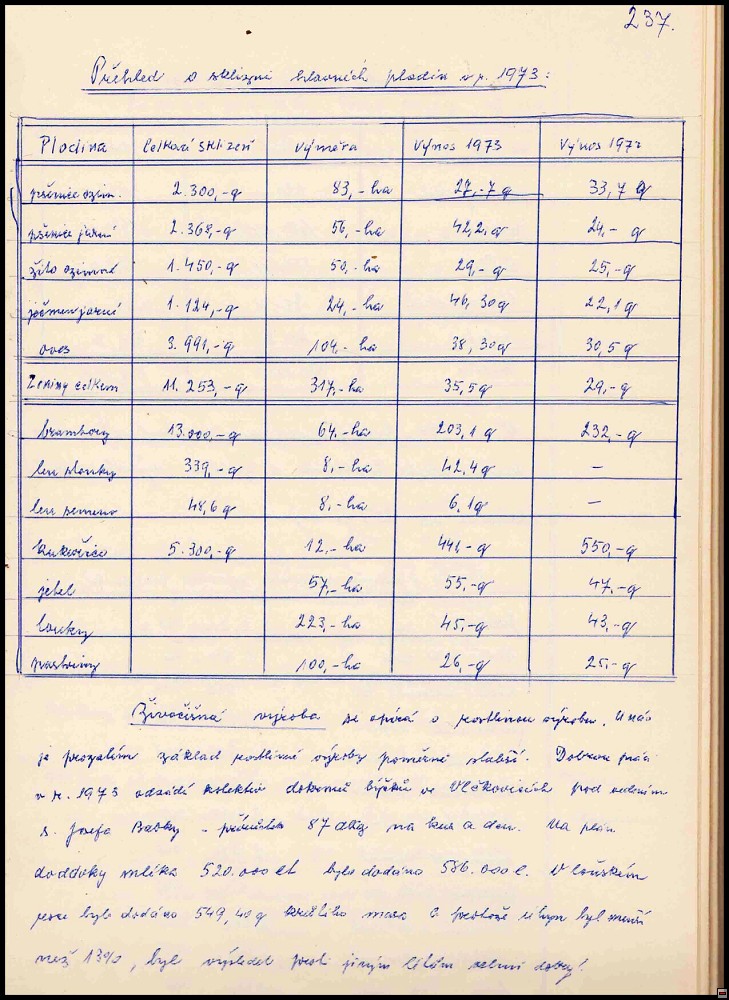 237.
Přehled o sklizni hlavních plodin v r. 1973:
Plodina Celková sklizeň Výměra Výnos 1973 Výnos 1972
pšenice ozim. 2.300,-q 83,-ha 27,-7q 33,7q
pšenice jarní 2.368,-q 56,-ha 42,2q 24,-q
žito ozimné 1.450,-q 50,-ha 29,-q 25,-q
ječmen jarní 1.124,-q 24,-ha 46,30q 22,1q
oves 3.991,-q 104,-ha 38,30q 30,5q
Zrniny celkem 11.253,-q 317,-ha 35,5q 29,-q
brambory 13.000,-q 64,-ha 203,1q 232,-q
len stonky 339,-q 8,-ha 42,4q —
len semeno 48,6q 8,-ha 6,1q —
kukuřice 5.300,-q 12,-ha 441,-q 550,-q
jetel 57,-ha 55,-q 47,-q
louky 223,-ha 45,-q 43,-q
pastviny 100,-ha 26,-q 25,-q
Živočišná výroba se opírá o rostlinou výrobu. U nás
je prozatím základ rostliné výroby poměrně slabší. Dobrou práci
v r. 1973 odvádí kolektiv výkrmu býčků ve Vlčkovicích pod vedením
s. Josefa Bašky - přírůstek 87 dkg na kus a den. Na plán
dodávky mléka 520.000 lt bylo dodáno 586.000 l. V loňském
roce bylo dodáno 549,40q masa a protože úhyn byl menší
než 13%, byl výsledek proti jiným létům velmi dobrý!